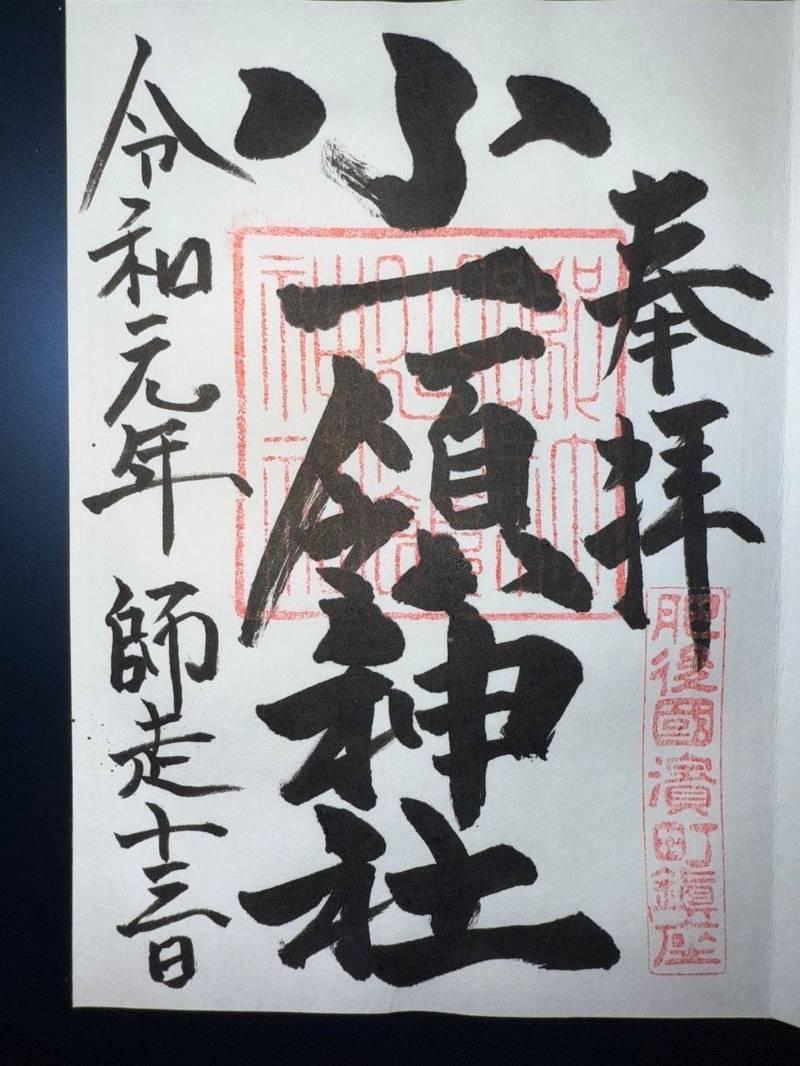 奉拝
肥後國濱町鎮座
小一領神社
令和元年 師走十三日